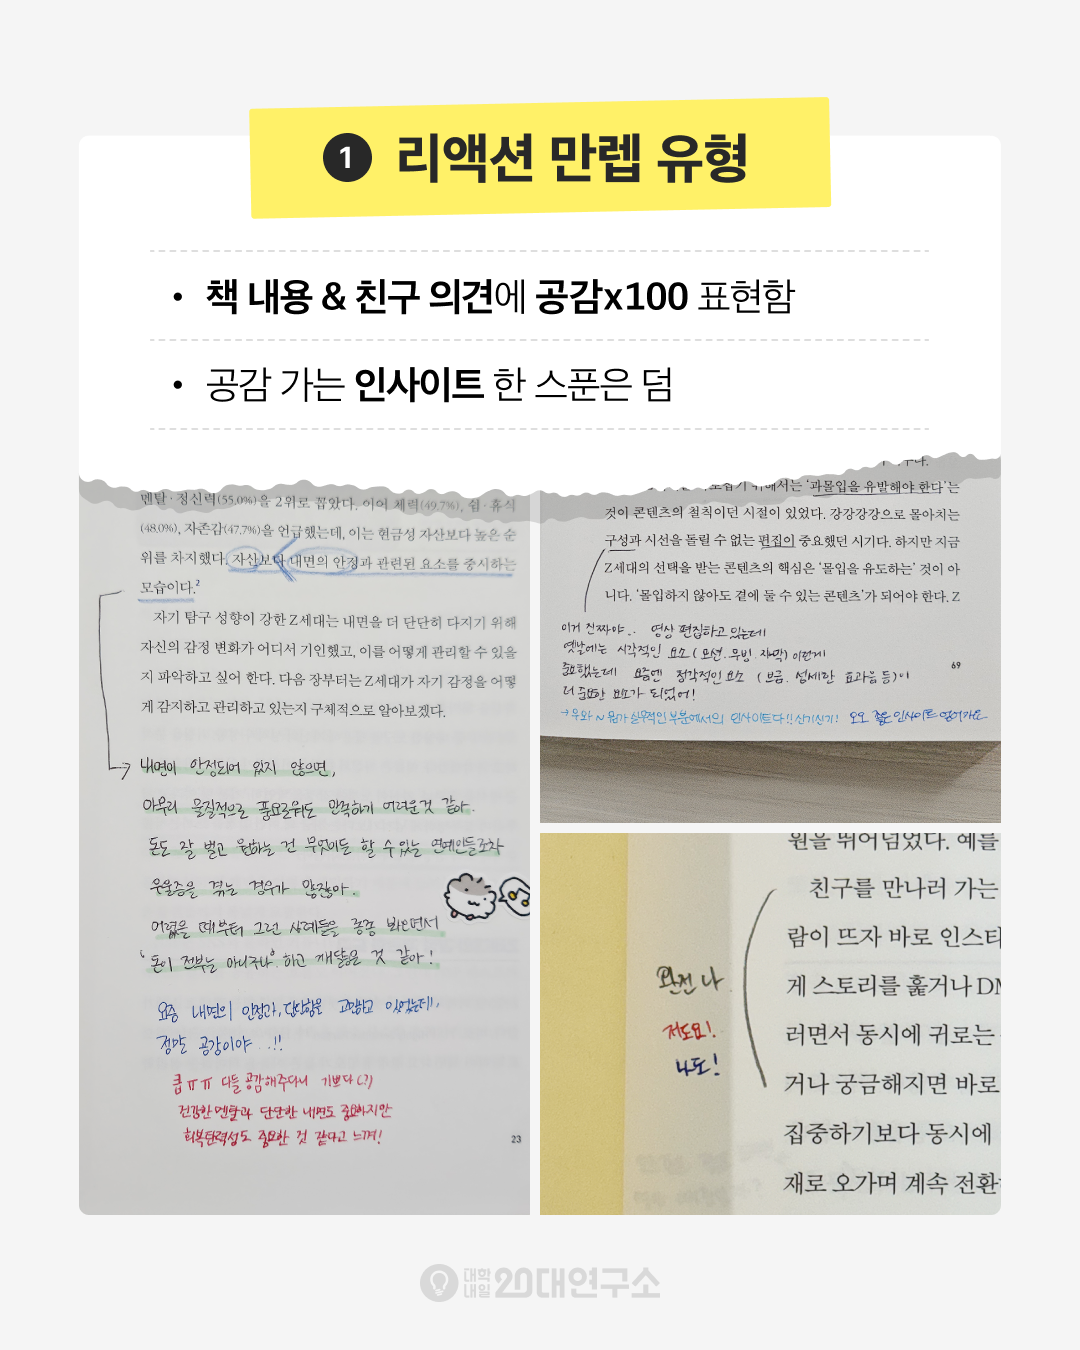 1 리액션 만렙 유형
• 책 내용 & 친구 의견에 공감x100 표현함
• 공감 가는 인사이트 한 스푼은 덤
멘탈·정신력(55.0%)을 2위로 꼽았다. 이어 체력(49.7%), 쉼·휴식
(48.0%), 자존감(47.7%)을 언급했는데, 이는 현금성 자산보다 높은 순
위를 차지했다. 자산보다 내면의 안정과 관련된 요소를 중시하는
모습이다.2
자기 탐구 성향이 강한 Z세대는 내면을 더 단단히 다지기 위해
자신의 감정 변화가 어디서 기인했고, 이를 어떻게 관리할 수 있을
지 파악하고 싶어 한다. 다음 장부터는 Z세대가 자기 감정을 어떻
게 감지하고 관리하고 있는지 구체적으로 알아보겠다.
내면이 안정되어 있지 않으면,
아무리 물질적으로 풍요로워도 만족하기 어려운 것 같아.
돈도 잘 벌고 원하는 건 무엇이든 할 수 있는 연예인들조차
우울증을 겪는 경우가 많잖아.
어렸을 때부터 그런 사례들을 종종 봐오면서
'돈이 전부는 아니구나'. 하고 깨닫는 것 같아!
요즘 내면의 안정과, 단단함을 고민하고 있었는데,
정말 공감이야 ..!!
큽 ㅠㅠ 다들 공감해주다니 기쁘다(?)
건강한 멘탈과 단단한 내면도 중요하지만
회복탄력성도 중요한 것 같다고 느껴!
23
위해서는 '과몰입을 유발해야 한다'는
것이 콘텐츠의 철칙이던 시절이 있었다. 강강강강으로 몰아치는
구성과 시선을 돌릴 수 없는 편집이 중요했던 시기다. 하지만 지금
Z세대의 선택을 받는 콘텐츠의 핵심은 '몰입을 유도하는' 것이 아
니다. '몰입하지 않아도 곁에 둘 수 있는 콘텐츠'가 되어야 한다. Z
이거 진짜야.. 영상 편집하고 있는데
옛날에는 시각적인 요소 (모션. 무빙. 자막) 이런게
중요했는데 요즘엔 청각적인 요소 (브금. 섬세한 효과음 등)이
더 중요한 요소가 되었어!
69
→ 우와~ 뭔가 실무적인 부분에서의 인사이트다!! 신기신기! 오오 좋은 인사이트 얻어가요
원을 뛰어넘었다. 예를
친구를 만나러 가는
람이 뜨자 바로 인스타
게 스토리를 훑거나 DM
러면서 동시에 귀로는
거나 궁금해지면 바로
집중하기보다 동시에
재로 오가며 계속 전환
완전 나
저도요!
나도!
대학내일 20대연구소